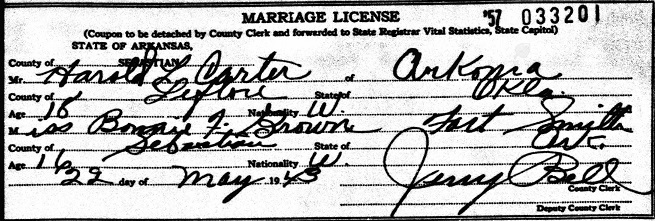 MARRIAGE LICENSE '57 033201
(Coupon to be detached by County Clerk and forwarded to State Registrar Vital Statistics, State Capitol)
STATE OF ARKANSAS,
County of SEBASTIAN
Mr. Harold L Carter of Arkoma
County of Leflore State of Okla.
Age 18 Nationality W.
Miss Bonnie F. Brown of Fort Smith
County of Sebastian State of Ark.
Age 16 Nationality W
22 day of May 19 Jerry Bell
County Clerk
Deputy County Clerk